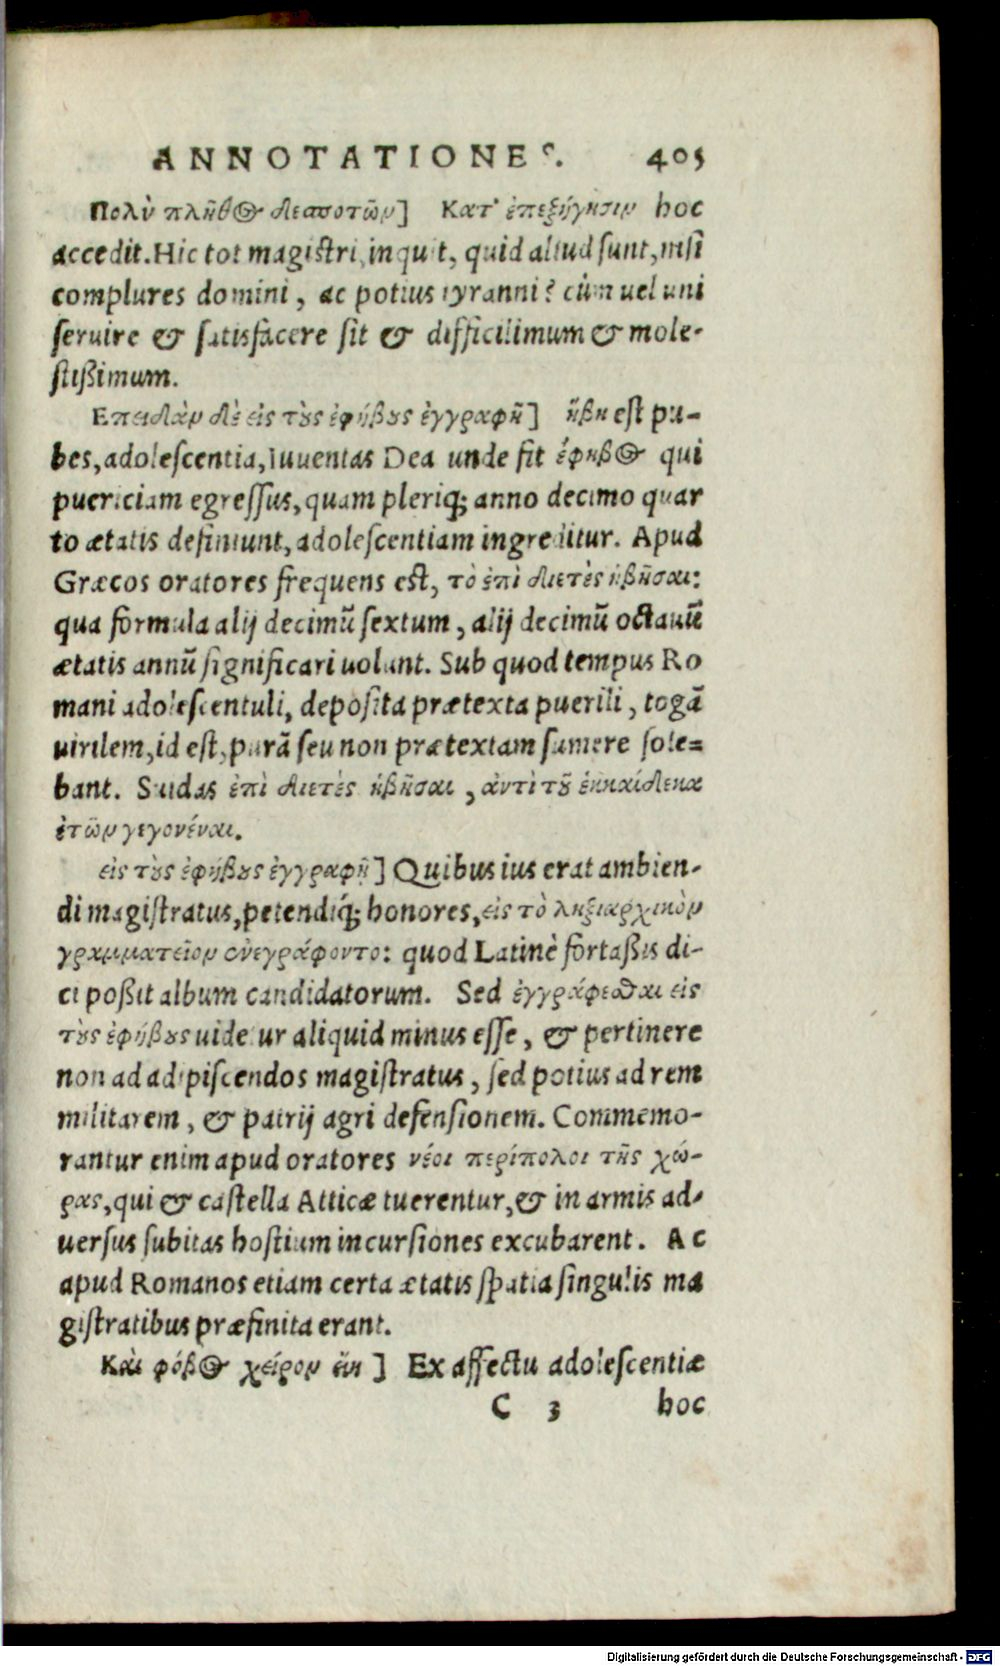 ANNOTATIONES. 405
Πολὺ πλῆθος δεσποτῶν] Κατ' ἐπεξήγησιν hoc
accedit. Hic tot magistri, inquit, quid aliud sunt, nisi
complures domini, ac potius tyranni? cùm uel uni
seruire & satisfacere sit & difficilimum & mole-
stißimum.
Επειδὰν δὲ εἰς τοὺς ἐφήβους ἐγγραφῆ] ἥβη est pu-
bes, adolescentia, Iuuentas Dea unde fit ἔφηβος qui
puericiam egressus, quam pleriq; anno decimo quar
to ætatis definiunt, adolescentiam ingreditur. Apud
Græcos oratores frequens est, τὸ ἐπὶ διετὲς ἡβῆσαι:
qua formula alij decimũ sextum, alij decimũ octauũ
ætatis annũ significari uolunt. Sub quod tempus Ro
mani adolescentuli, deposita prætexta puerili, togã
uirilem, id est, purã seu non prætextam sumere sole=
bant. Suidas ἐπὶ διετὲς ἡβῆσαι, ἀντὶ τοῦ ἑκκαίδεκα
ἐτῶν γεγονέναι.
εἰς τοὺς ἐφήβους ἐγγραφῆ] Quibus ius erat ambien-
di magistratus, petendíq; honores, εἰς τὸ ληξιαρχικὸν
γραμματεῖον ἐνεγράφοντο: quod Latinè fortaßis di-
ci poßit album candidatorum. Sed ἐγγράφεσθαι εἰς
τοὺς ἐφήβους uidetur aliquid minus esse, & pertinere
non ad adipiscendos magistratus, sed potius ad rem
militarem, & patrij agri defensionem. Commemo-
rantur enim apud oratores νέοι περίπολοι τῆς χώ-
ρας, qui & castella Atticæ tuerentur, & in armis ad-
uersus subitas hostium incursiones excubarent. Ac
apud Romanos etiam certa ætatis spatia singulis ma
gistratibus præfinita erant.
Καὶ φόβος χείρον ἔιη] Ex affectu adolescentiæ
C 3 hoc
Digitalisierung gefördert durch die Deutsche Forschungsgemeinschaft - DFG